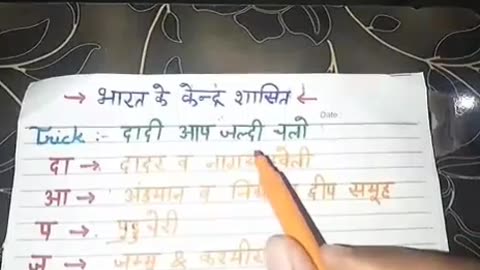 → भारत के केन्द्र शासित ←
Date
Trick :- दादी आप जल्दी चलो
दा → दादर व
आ → अंडमान व द्वीप समूह
प → पुदुचेरी
ज → जम्मू &